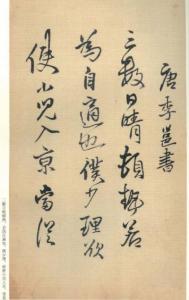 唐李邕書
三數日晴頓熱若
為自適也僕少理欲
使小兒入京當從